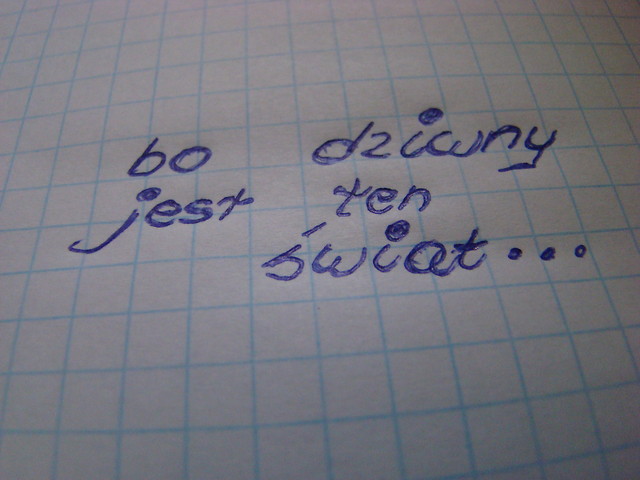 bo dziwny
jest ten
świat...